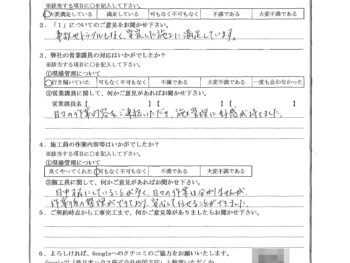 ※該当する項目に○を記入して下さい。
大変満足している 満足している 可もなく不可もなく 不満である 大変不満である
2．「1」についてのご意見をお聞かせ下さい。
事故やトラブルもなく、安定した施工に満足しています。
3．弊社の営業課員の対応はいかがでしたか？
※該当する項目に○を記入して下さい。
①現場管理について
行き届いていた 可もなく不可もなく 不満である 大変不満である 一度も会わなかった
②営業課員に関して、何かご意見があればお聞かせ下さい。
営業課員名【 】【 】【 】
日々の作業内容をご連絡いただき、施工管理に好感が持てました。
4．施工員の作業内容等はいかがでしたか？
※該当する項目に○を記入して下さい。
①現場管理について
良くやってくれた 可もなく不可もなく 不満である 大変不満である
②施工員に関して、何かご意見があればお聞かせ下さい。
日中 にしていることが多く、日々の作業は分かりませんが、
作業後の整理ができており、安心してまかせることができました。
5．ご契約時点から工事完工まで、何かご意見等がありましたらお聞かせ下さい。
6．よろしければ、Googleへのクチコミのご協力をお願いいたします。